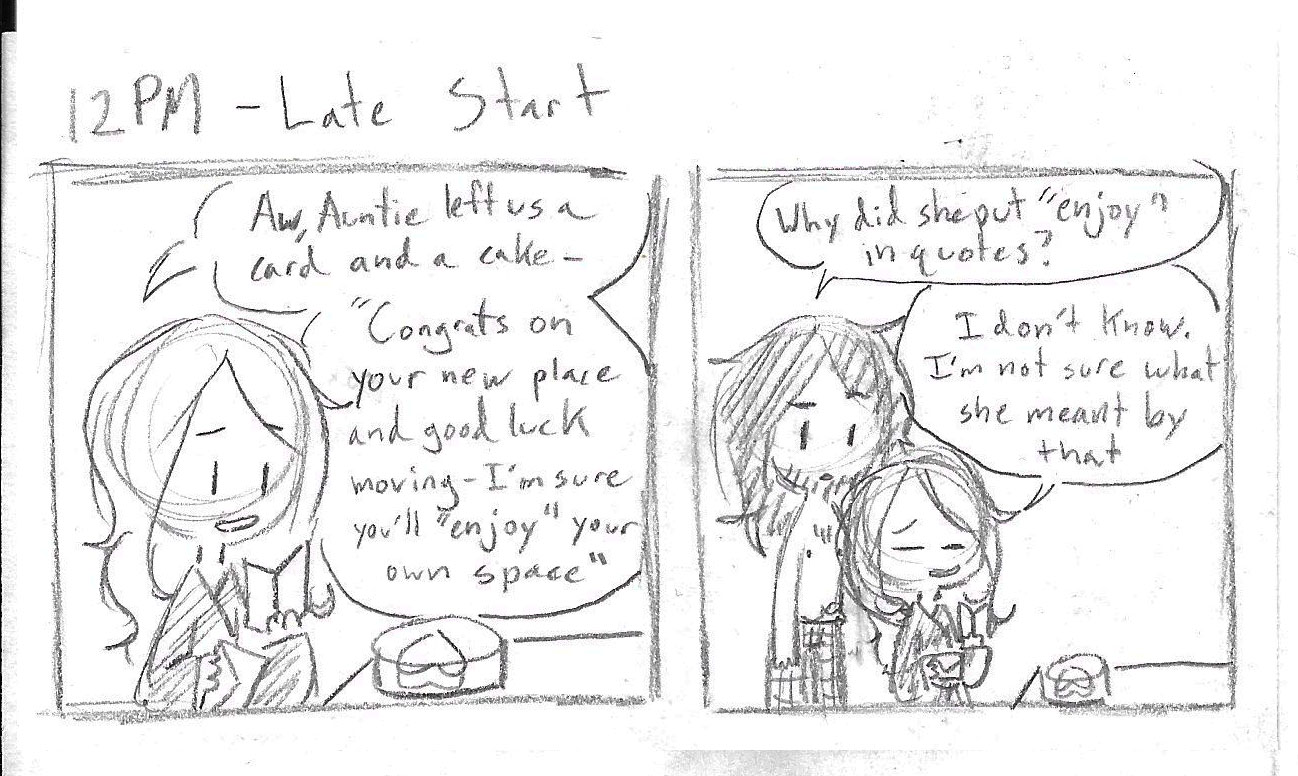 12PM - Late Start
Aw, Auntie left us a
card and a cake -
"Congrats on
your new place
and good luck
moving - I'm sure
you'll "enjoy" your
own space"
Why did she put "enjoy"
in quotes?
I don't know.
I'm not sure what
she meant by
that